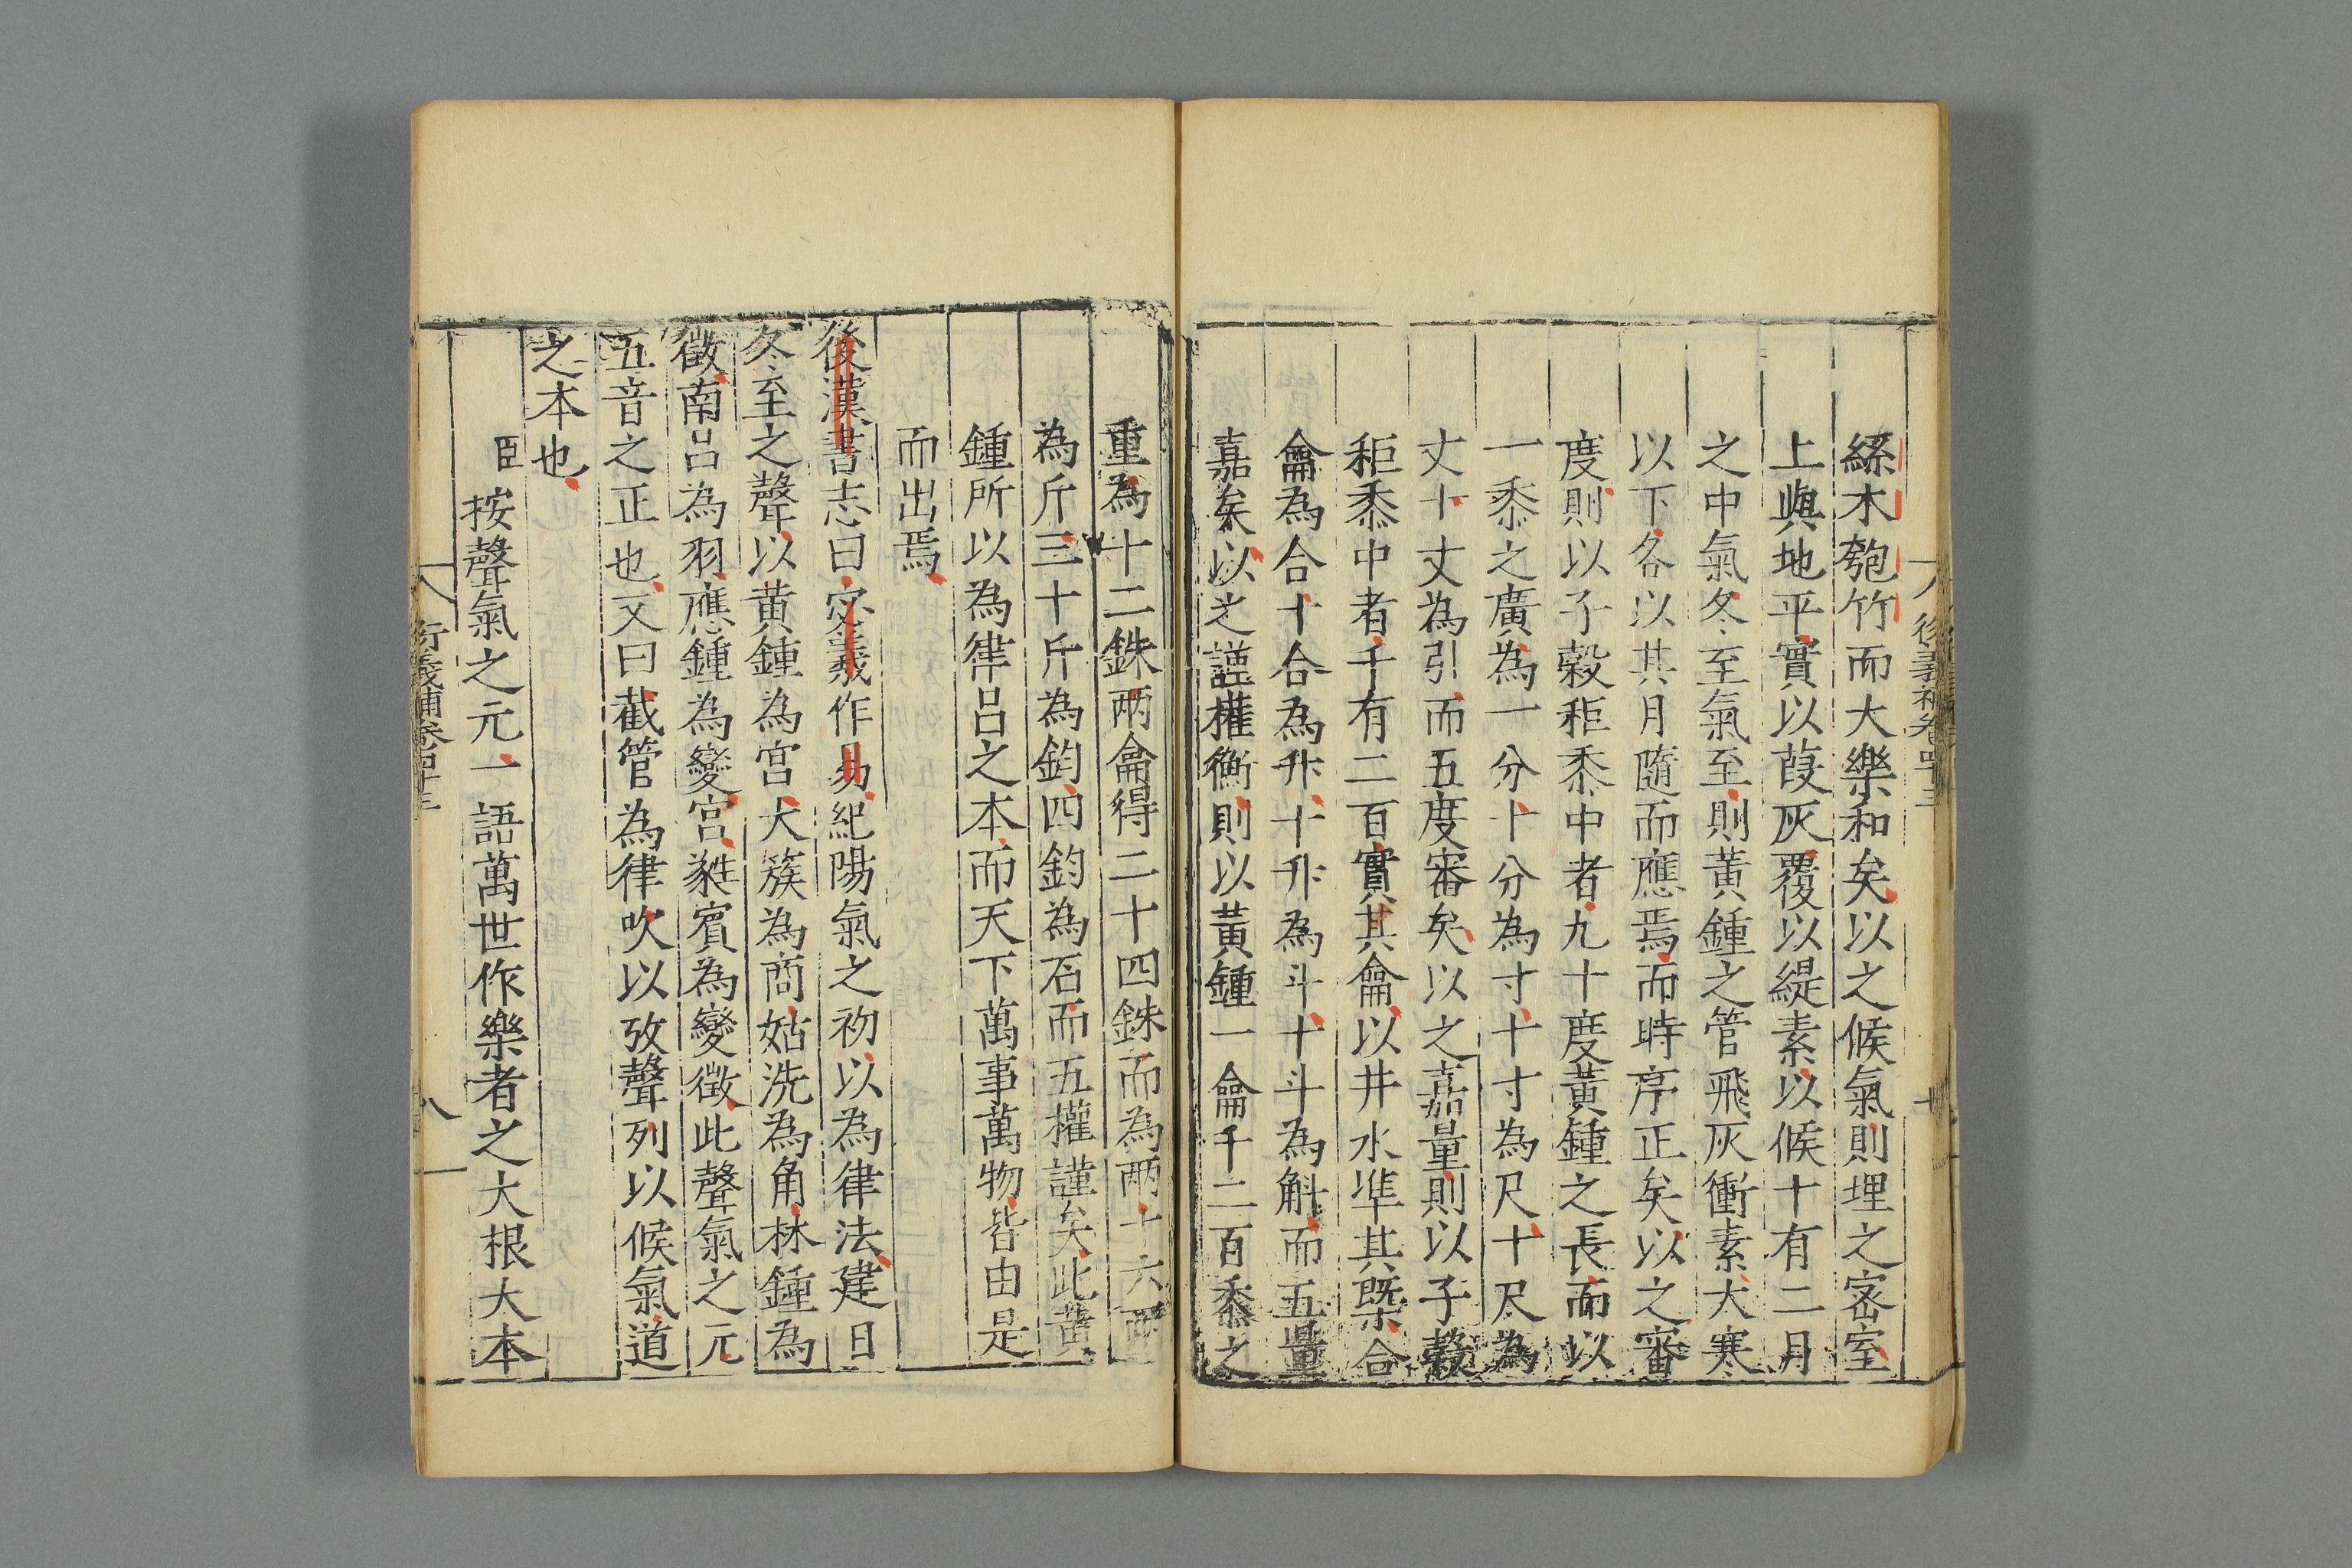 絲木匏竹而大樂和矣以之候氣則埋之密室
上與地平實以葭灰覆以緹素以候十有二月
之中氣冬至氣至則黃鍾之管飛灰衝素大寒
以下各以其月隨而應焉而時序正矣以之審
度則以子糓秬黍中者九十度黃鍾之長而以
一黍之廣為一分十分為寸十寸為尺十尺為
丈十丈為引而五度審矣以之嘉量則以子糓
秬黍中者千有二百實其龠以井水準其槩合
龠為合十合為升十升為斗十斗為斛而五量
嘉矣以之謹權衡則以黃鍾一龠千二百黍之
重為十二銖兩龠得二十四銖而為兩十六兩
為斤三十斤為鈞四鈞為石而五權謹矣此黃
鍾所以為律呂之本而天下萬事萬物皆由是
而出焉
後漢書志曰宓羲作易紀陽氣之初以為律法建日
冬至之聲以黃鍾為宮大簇為商姑洗為角林鍾為
徵南呂為羽應鍾為變宮蕤賓為變徵此聲氣之元
五音之正也又曰截管為律吹以攷聲列以候氣道
之本也
臣按聲氣之元一語萬世作樂者之大根大本
衍義補卷四十三
八